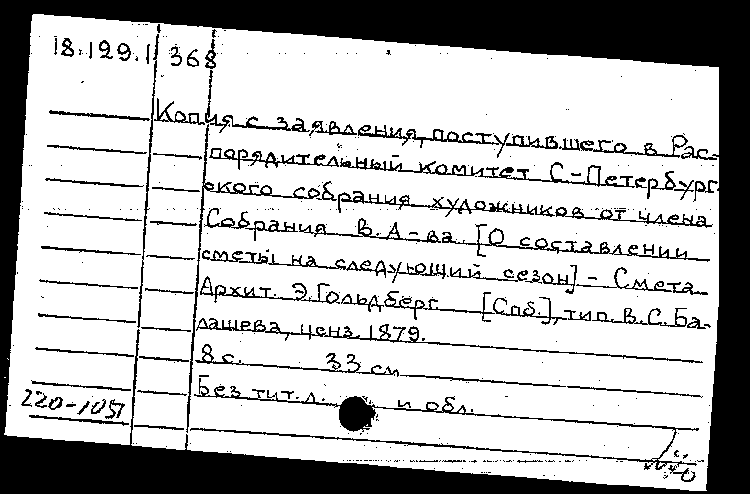 18.129.1 368
Копия с заявления, поступившего в Рас-
порядительный комитет С-Петербург-
ского собрания художников от члена
Собрания В.А-ва [О составлении
сметы на следующий сезон] - Смета
Архит. Э.Гольдберг [Спб.], тип. В.С.Ба-
лашева, ценз. 1879.
8 с. 33 см
Без тит.л. и обл.
220-1051